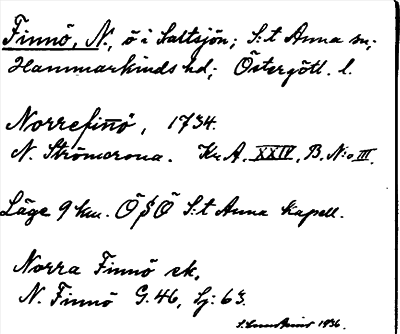 Finnö, N., ö i Saltsjön; S:t Anna sn;
Hammarkinds hd; Östergötl. l.
Norrefinö, 1734.
N. Strömarona. Kr. A. XXIV, B. N:o III.
Läge 9 km. Ö § Ö S:t Anna Kapell.
Norra Finnö ek.
N. Finnö G. 46, Sj: 63.
1936.